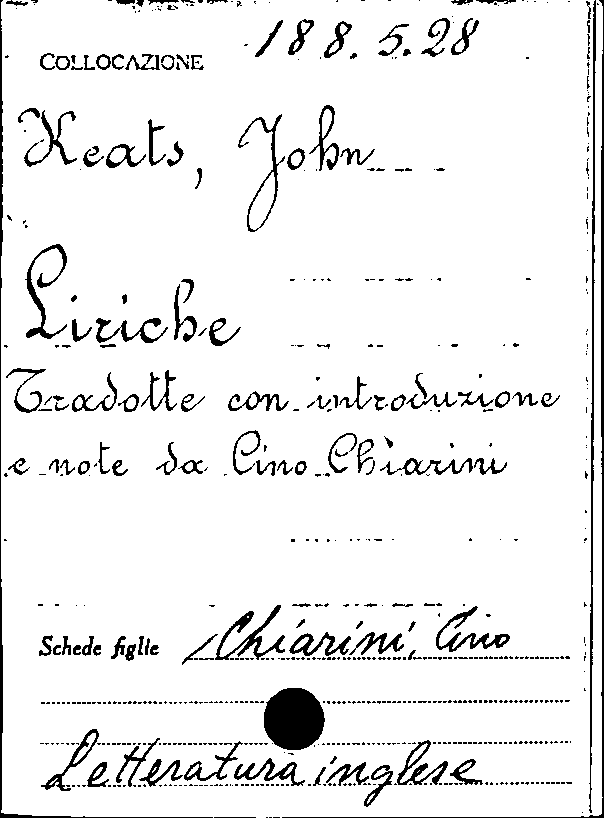 COLLOCAZIONE 188.5.28
Keats, John
Liriche
Tradotte con introduzione
e note da Cino Chiarini
Schede figlie Chiarini, Cino
Letteratura inglese